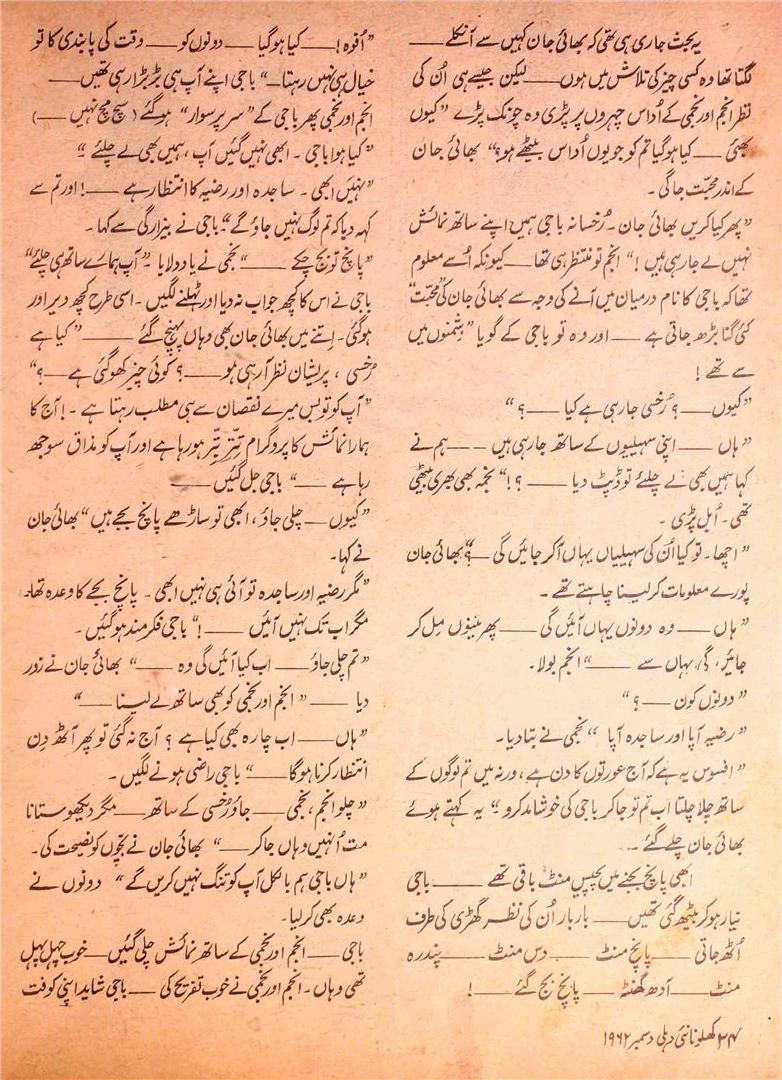 یہ بحث جاری ہی تھی کہ بھائی جان کہیں سے آ نکلے ——
لگتا تھا وہ کسی چیز کی تلاش میں ہوں —— لیکن جیسے ہی اُن کی
نظر انجم اور نجمی کے اُداس چہروں پر پڑی وہ چونک پڑے ”کیوں
بھئی —— کیا ہو گیا تم کو جو یوں اُداس بیٹھے ہو؟“ بھائی جان
کے اندر محبّت جاگی۔
”پھر کیا کریں بھائی جان۔ رُخسانہ باجی ہمیں اپنے ساتھ نمائش
نہیں لے جا رہی ہیں!“ انجم تو منتظر ہی تھا —— کیونکہ اُسے معلوم
تھا کہ باجی کا نام درمیان میں آنے کی وجہ سے بھائی جان کی ”محبّت“
کئی گنا بڑھ جاتی ہے —— اور وہ تو باجی کے گویا ”دشمنوں میں
سے تھے!
”کیوں —— ؟ رُخسی جا رہی ہے کیا —— ؟“
”ہاں —— اپنی سہیلیوں کے ساتھ جا رہی ہیں —— ہم نے
کہا ہمیں بھی لے چلئے تو ڈپٹ دیا —— ؟!“ نجمہ بھی بھری بیٹھی
تھی۔ اُبل پڑی۔
”اچھا۔ تو کیا اُن کی سہیلیاں یہاں آ کر جائیں گی —— ؟“ بھائی جان
پورے معلومات کر لینا چاہتے تھے۔
”ہاں —— وہ دونوں یہاں آئیں گی —— پھر تینوں مِل کر
جائیں گی، یہاں سے —— “ انجم بولا۔
”دونوں کون —— ؟“
”رضیہ آپا اور ساجدہ آپا“ نجمی نے بتا دیا۔
”افسوس یہ ہے کہ آج عورتوں کا دن ہے، ورنہ میں تم لوگوں کے
ساتھ چلا چلتا اب تم تو جا کر باجی کی خوشامد کرو“ یہ کہتے ہوئے
بھائی جان چلے گئے۔
ابھی پانچ بجنے میں پچیس منٹ باقی تھے —— باجی
تیار ہو کر بیٹھ گئی تھیں —— بار بار اُن کی نظر گھڑی کی طرف
اُٹھ جاتی —— پانچ منٹ —— دس منٹ —— پندرہ
منٹ —— آدھ گھنٹہ —— پانچ بج گئے —— !
”اُفوہ! —— کیا ہو گیا —— دونوں کو —— وقت کی پابندی کا تو
خیال ہی نہیں رہتا —“ باجی اپنے آپ ہی بڑبڑا رہی تھیں ——
انجم اور نجمی پھر باجی کے ”سر پر سوار“ ہو گئے (سچ مچ نہیں ——)
”کیا ہوا باجی۔ ابھی نہیں گئیں آپ، ہمیں بھی لے چلئے“
”نہیں ابھی۔ ساجدہ اور رضیہ کا انتظار ہے —— ! اور تم سے
کہہ دیا کہ تم لوگ نہیں جاؤ گے“ باجی نے بیزارگی سے کہا۔
”پانچ تو بج چکے —— “ نجمی نے یاد دلایا۔ ”آپ ہمارے ساتھ ہی چلئے“
باجی نے اس کا کچھ جواب نہ دیا اور ٹہلنے لگیں۔ اسی طرح کچھ دیر اور
ہو گئی۔ اِتنے میں بھائی جان بھی وہاں پہنچ گئے —— ”کیا ہے
رُخسی، پریشان نظر آ رہی ہو —— ؟ کوئی چیز کھو گئی ہے —— ؟“
”آپ کو تو بس میرے نقصان سے ہی مطلب رہتا ہے۔! آج کا
ہمارا نمائش کا پروگرام تِتّر بِتّر ہو رہا ہے اور آپ کو مذاق سوجھ
رہا ہے —— “ باجی جل گئیں ——
”کیوں — چلی جاؤ، ابھی تو ساڑھے پانچ بجے ہیں“ بھائی جان
نے کہا۔
”مگر رضیہ اور ساجدہ تو آئی ہی نہیں ابھی۔ پانچ بجے کا وعدہ تھا۔
مگر اب تک نہیں آئیں —— !“ باجی فکر مند ہو گئیں۔
”تم چلی جاؤ —— اب کیا آئیں گی وہ —— “ بھائی جان نے زور
دیا —— ”انجم اور نجمی کو بھی ساتھ لے لینا —— “
”ہاں —— اب چارہ بھی کیا ہے؟ آج نہ گئی تو پھر آٹھ دِن
انتظار کرنا ہو گا —— “ باجی راضی ہونے لگیں۔
”چلو انجم، نجمی —— جاؤ رُخسی کے ساتھ —— مگر دیکھو ستانا
مت اُنہیں وہاں جا کر —— “ بھائی جان نے بچّوں کو نصیحت کی۔
”ہاں باجی ہم بالکل آپ کو تنگ نہیں کریں گے“ دونوں نے
وعدہ بھی کر لیا۔
باجی —— انجم اور نجمی کے ساتھ نمائش چلی گئیں —— خوب چہل پہل
تھی وہاں۔ انجم اور نجمی نے خوب تفریح کی —— باجی شاید اپنی کوفت
۲۴ کھلونا نئی دہلی دسمبر ۱۹۶۲